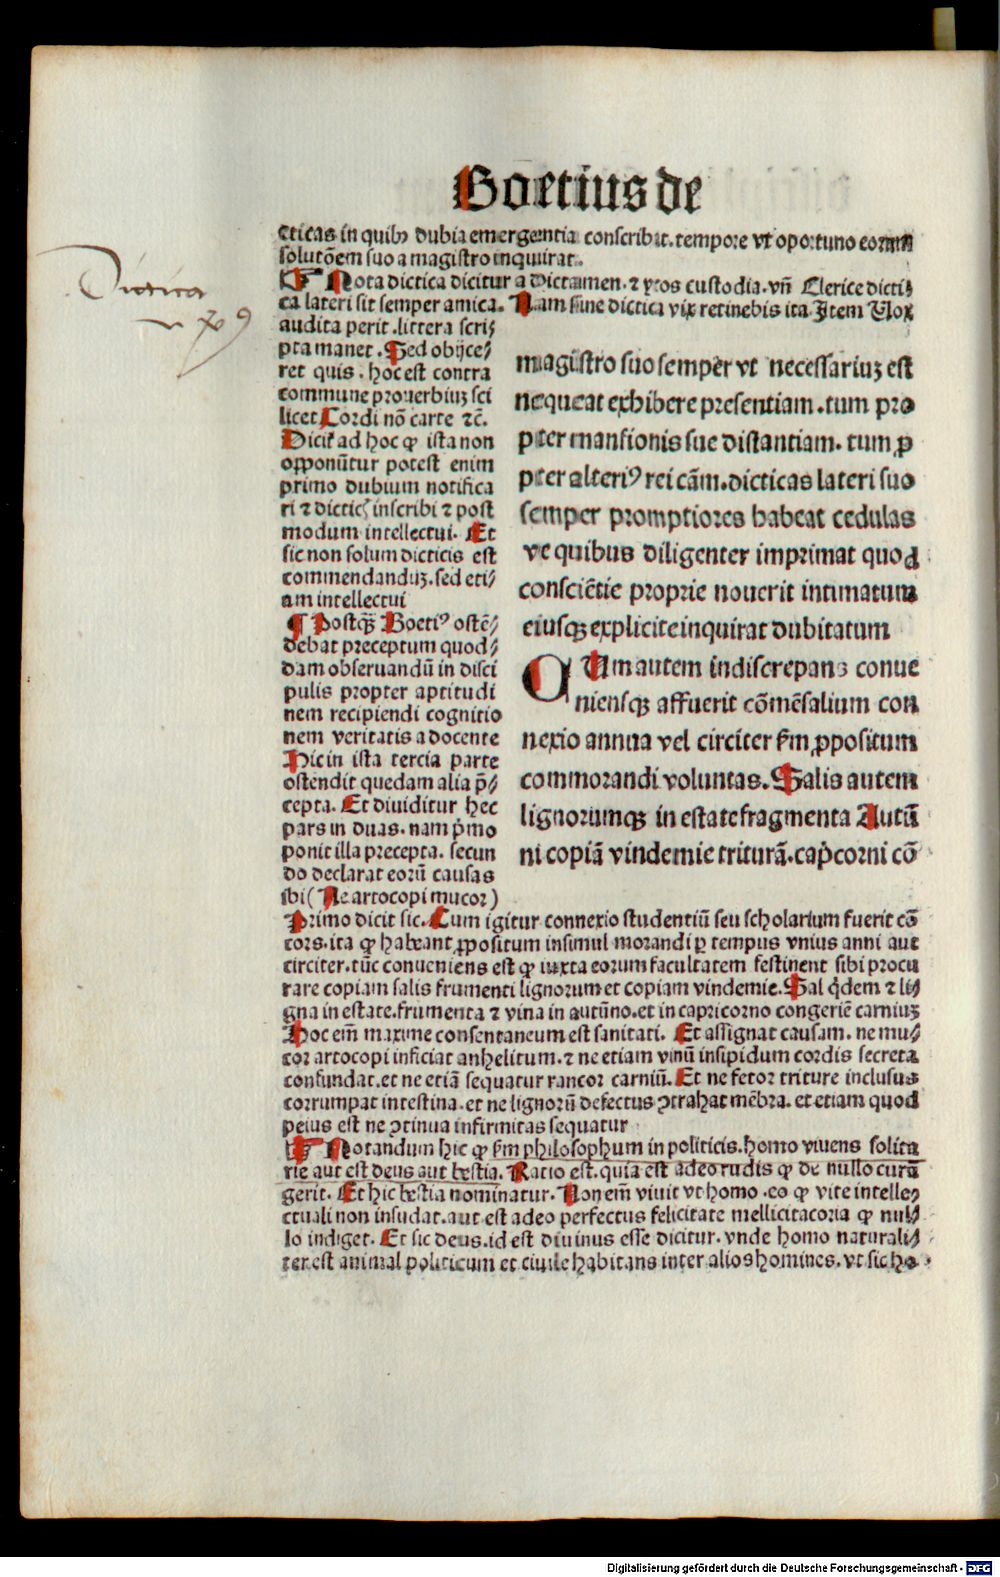 Boetius de
cticas in quibꝰ dubia emergentia conscribat. tempore vt oportuno eorum
solutōem suo a magistro inquirat.
Nota dictica dicitur a Dictamen. ⁊ ycos custodia. vñ Clerice dicti⸗
ca lateri sit semper amica. Nam sine dictica vix retinebis ita. Item Vox
audita perit. littera scri⸗
pta manet. Sed obijce⸗
ret quis. hoc est contra
commune prouerbiuꝫ sci
licet Cordi nō carte ⁊c̄.
Dicit᷑ ad hoc ꝙ ista non
opponūtur potest enim
primo dubium notifica
ri ⁊ dictic inscribi ⁊ post
modum intellectui. Et
sic non solum dicticis est
commendanduꝫ. sed eti⸗
am intellectui
¶ Postqꝫ̄ Boetiꝰ ostē⸗
debat preceptum quod⸗
dam obseruandū in disci
pulis propter aptitudi
nem recipiendi cognitio
nem veritatis a docente
Hic in ista tercia parte
ostendit quedam alia p̄⸗
cepta. Et diuiditur hec
pars in duas. nam pͥmo
ponit illa precepta. secun
do declarat eorū causas
ibi (Ne artocopi mucor)
magistro suo semper vt necessariuꝫ est
nequeat exhibere presentiam. tum pro
pter mansionis sue distantiam. tum ꝓ
pter alteriꝰ rei cām. dicticas lateri suo
semper promptiores habeat cedulas
ve quibus diligenter imprimat quod
consciētie proprie nouerit intimatum
eiusqꝫ explicite inquirat dubitatum
CUm autem indiscrepans conue
niensqꝫ affuerit cōmēsalium con
nexio annua vel circiter ẜm ꝓpositum
commorandi voluntas. Salis autem
lignorumqꝫ in estate fragmenta Autū
ni copiā vindemie triturā. capͥcorni cō
Primo dicit sic. Cum igitur connexio studentiū seu scholarium fuerit cō
cors. ita ꝙ habeant ꝓpositum insimul morandi ꝑ tempus vnius anni aut
circiter. tūc conueniens est ꝙ iuxta eorum facultatem festinent sibi procu
rare copiam salis frumenti lignorum et copiam vindemie. Sal qͥdem ⁊ li⸗
gna in estate. frumenta ⁊ vina in autūno. et in capricorno congeriē carniuꝫ
Hoc em̄ maxime consentaneum est sanitati. Et assignat causam. ne mu⸗
cor artocopi inficiat anhelitum. ⁊ ne etiam vinū insipidum cordis secreta
confundat. et ne etiā sequatur rancor carniū. Et ne fetor triture inclusus
corrumpat intestina. et ne lignorū defectus ꝯtrahat mēbra. et etiam quod
peius est ne ꝯtinua infirmitas sequatur
Notandum hic ꝙ ẜm philosophum in politicis. homo viuens solita
rie aut est deus aut bestia. Ratio est. quia est adeo rudis ꝙ de nullo curā
gerit. Et hic bestia nominatur. Non em̄ viuit vt homo. eo ꝙ vite intelle⸗
ctuali non insudat. aut est adeo perfectus felicitate mellicitacoria ꝙ nul⸗
lo indiget. Et sic deus. id est diuinus esse dicitur. vnde homo naturali⸗
ter est animal politicum et ciuile habitans inter alios homines. vt sic ho
Dictica
Digitalisierung gefördert durch die Deutsche Forschungsgemeinschaft - DFG